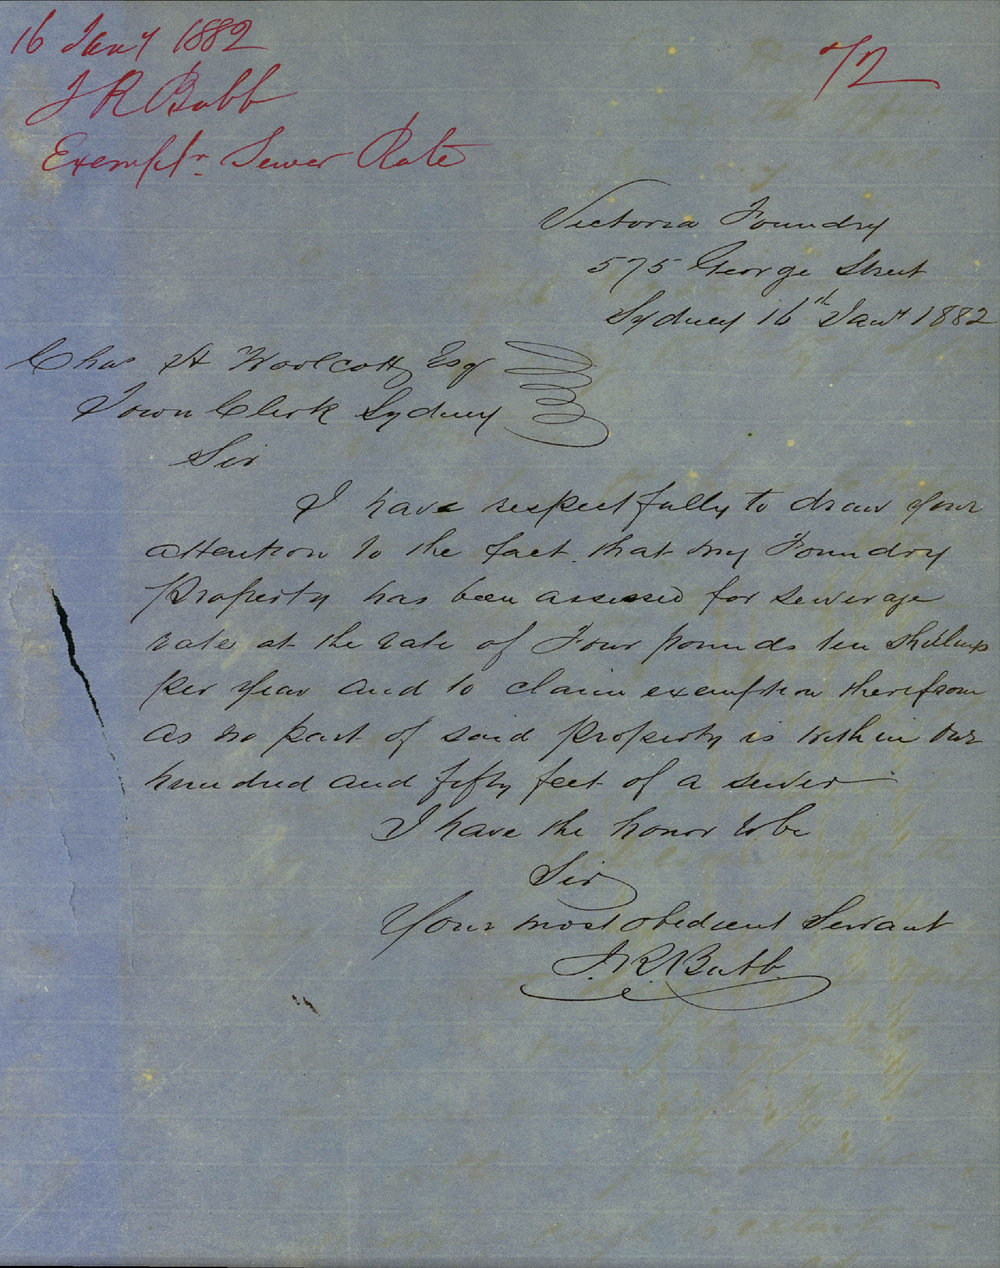 16 Jany 1882
J R Bubb
Exemptn. Sewer Rate
72
Victoria Foundry
575 George Street
Sydney 16th Jany 1882
Chas H Woolcott Esq
Town Clerk Sydney
Sir
I have respectfully to draw your
attention to the fact that my Foundry
Property has been assessed for sewerage
rate at the rate of Four pounds ten shillings
per year and to claim exemption therefrom
as no part of said property is within two
hundred and fifty feet of a sewer
I have the honor to be
Sir
Your most obedient Servant
J. R. Bubb.